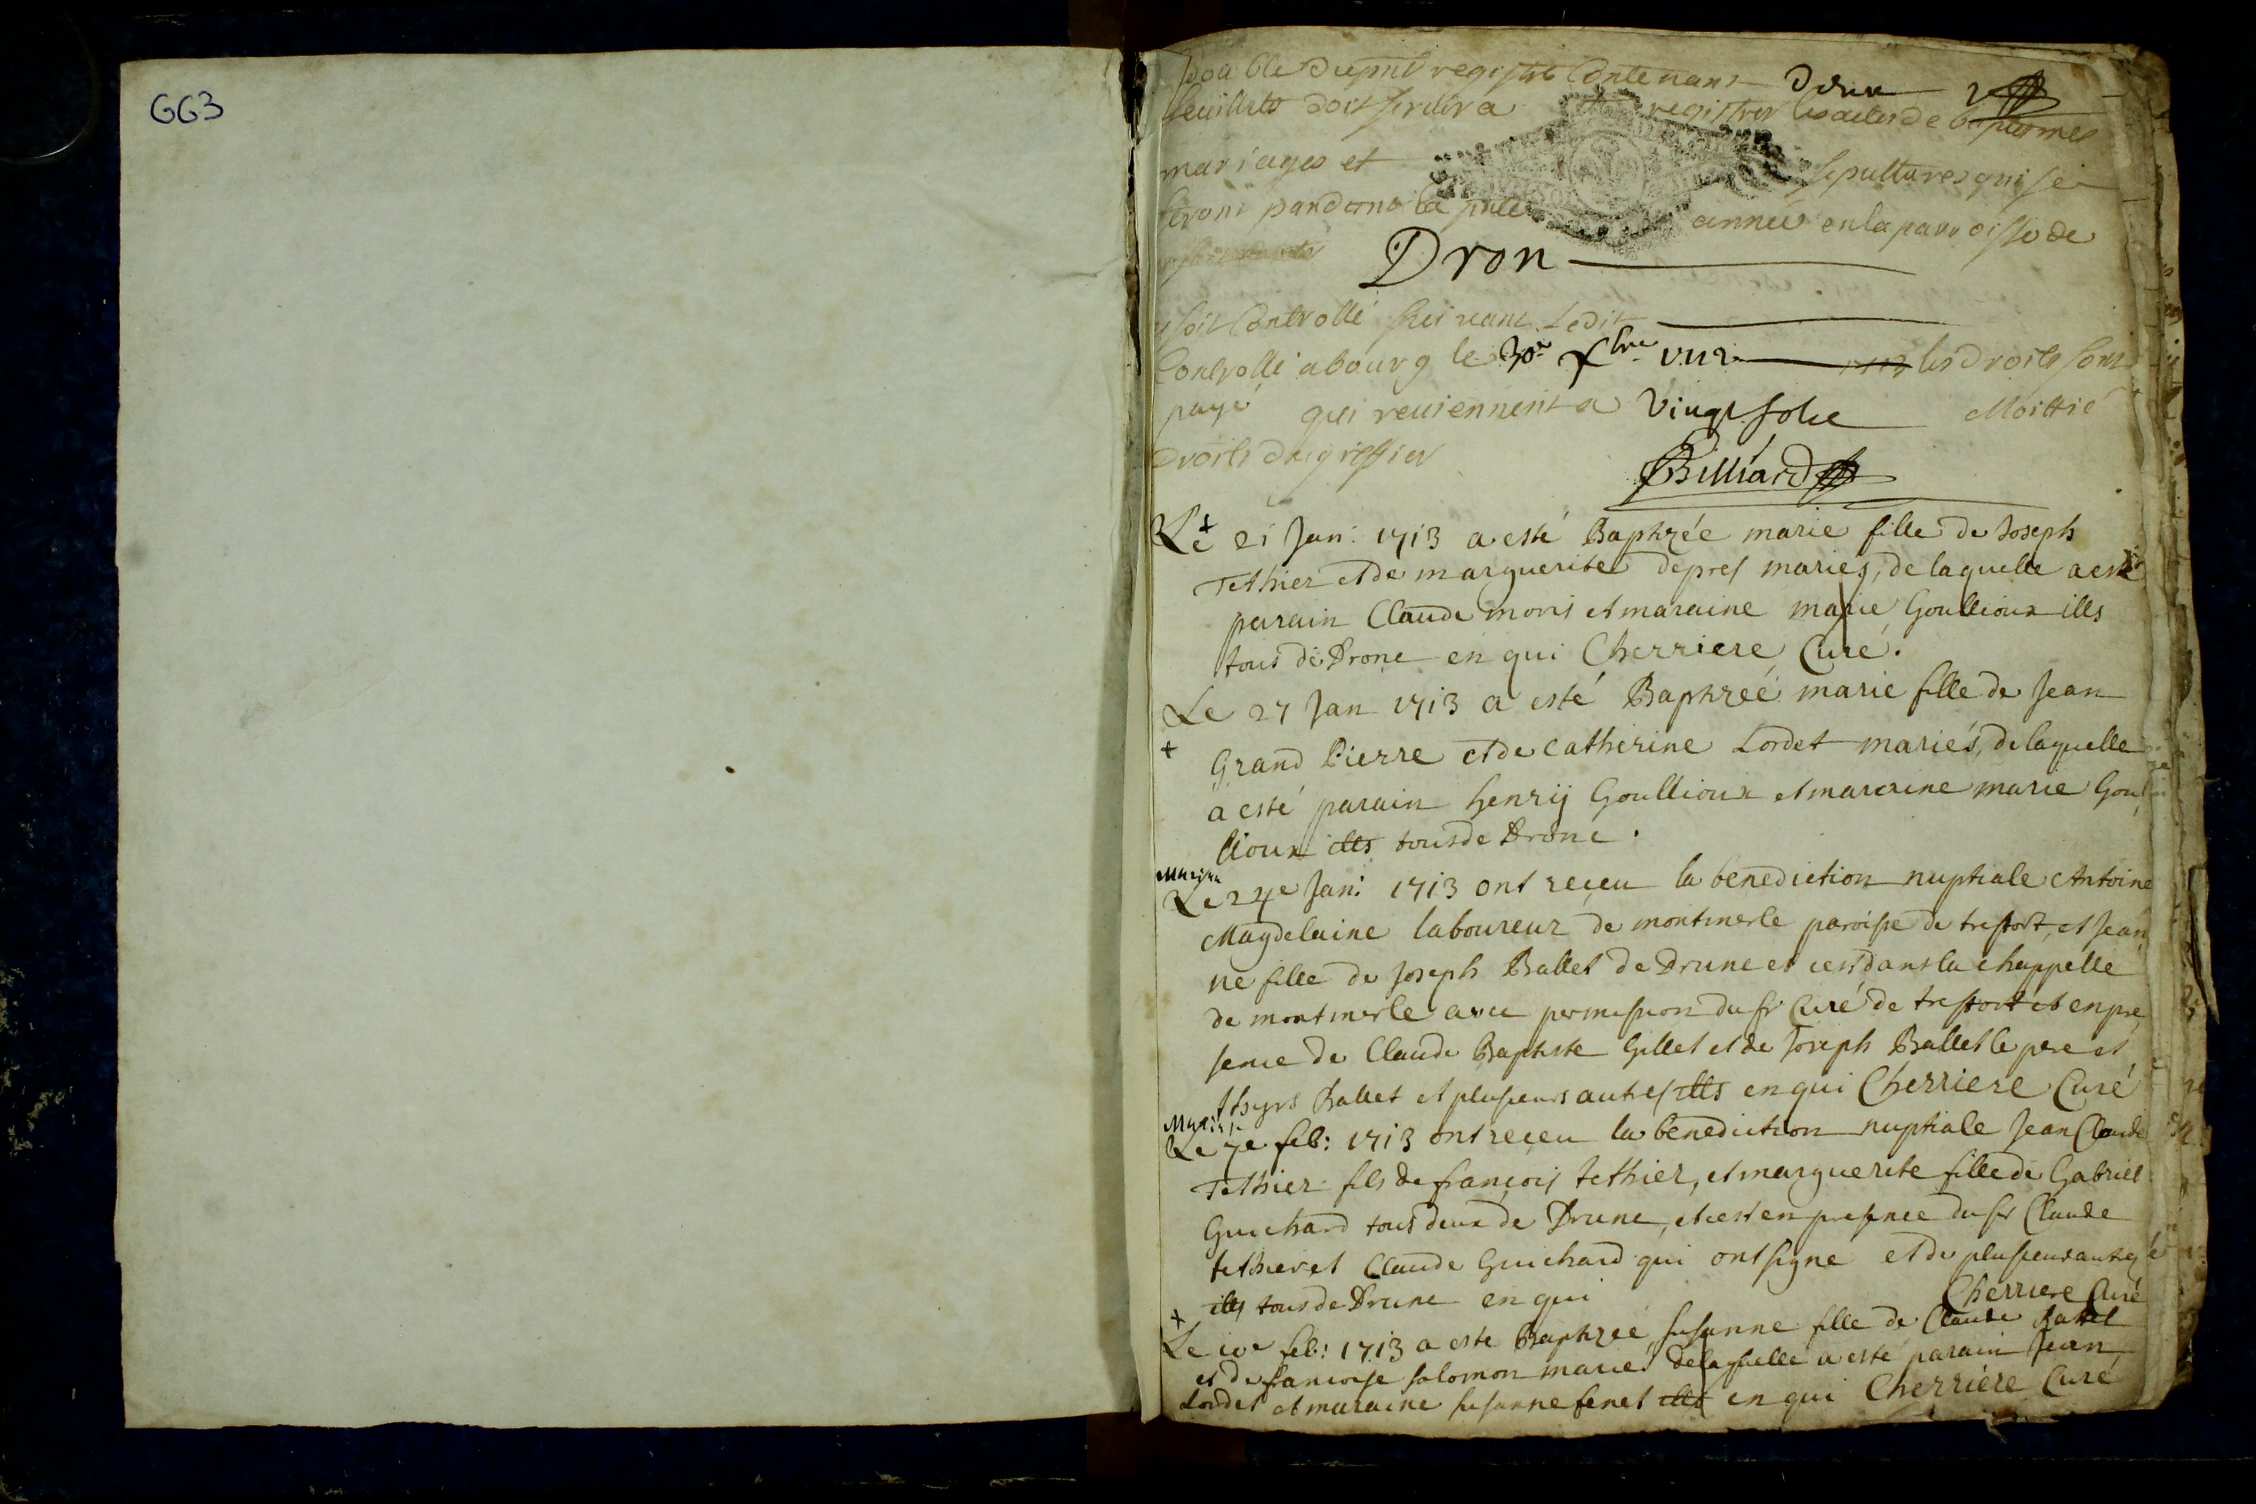 GG3
Double du pnt registre Contenant Deux
feuillets doit servir a registrer les actes de baptesmes
mariages et sepultures qui se
feront pandant la pnte année en la parroisse de
Dron
soit Controllé suivant Ledit
Controllé a bourg le 30e Xbre 1712 les droits sont
payé qui reviennent a Vingt sols Moittié
Droits du greffier
Billiard
Le 21 Jan: 1713 a esté Baptizée marie fille de Joseph
Tethier et de marguerite depres mariés, de laquelle a esté
parain Claude moris et maraine marie Goullioux ills
tous de Drone en qui Cherriere Curé.
Le 27 Jan 1713 a esté Baptizeé marie fille de Jean
Grand Pierre et de Catherine Lordet mariés, de laquelle
a esté parain henrij Goullioux et maraine marie Goul
lioux ills tous de Drone.
Mariage
Le 24e Jan: 1713 ont reçeu la benediction nuptiale Antoine
Magdelaine laboureur de montmerle paroisse de treffort, et Jean
ne fille de Joseph Ballet de Drune et cest dans la chappelle
de montmerle avec permission du sr Curé de treffort et en pre
sence de Claude Baptiste Gillet et de Joseph Ballet le pere et
thyrs Ballet et plusieurs autres ills en qui Cherriere Curé
Mariage
Le 7e feb: 1713 ont reçeu la benediction nuptiale Jean Claude
Tethier fils de françois tethier, et marguerite fille de Gabriel
Guichard tous deux de Drune, et cest en presence du sr Claude
tethier et Claude Guichard qui ont signe et de plusieurs autres
ills tous de Drune en qui Cherriere Curé
Le 10e feb: 1713 a este Baptizeé susanne fille de Claude Ballet
et de francoise salomon mariés de laquelle a esté parain Jean
Lordet et maraine susanne fenet ills en qui Cherriére Curé